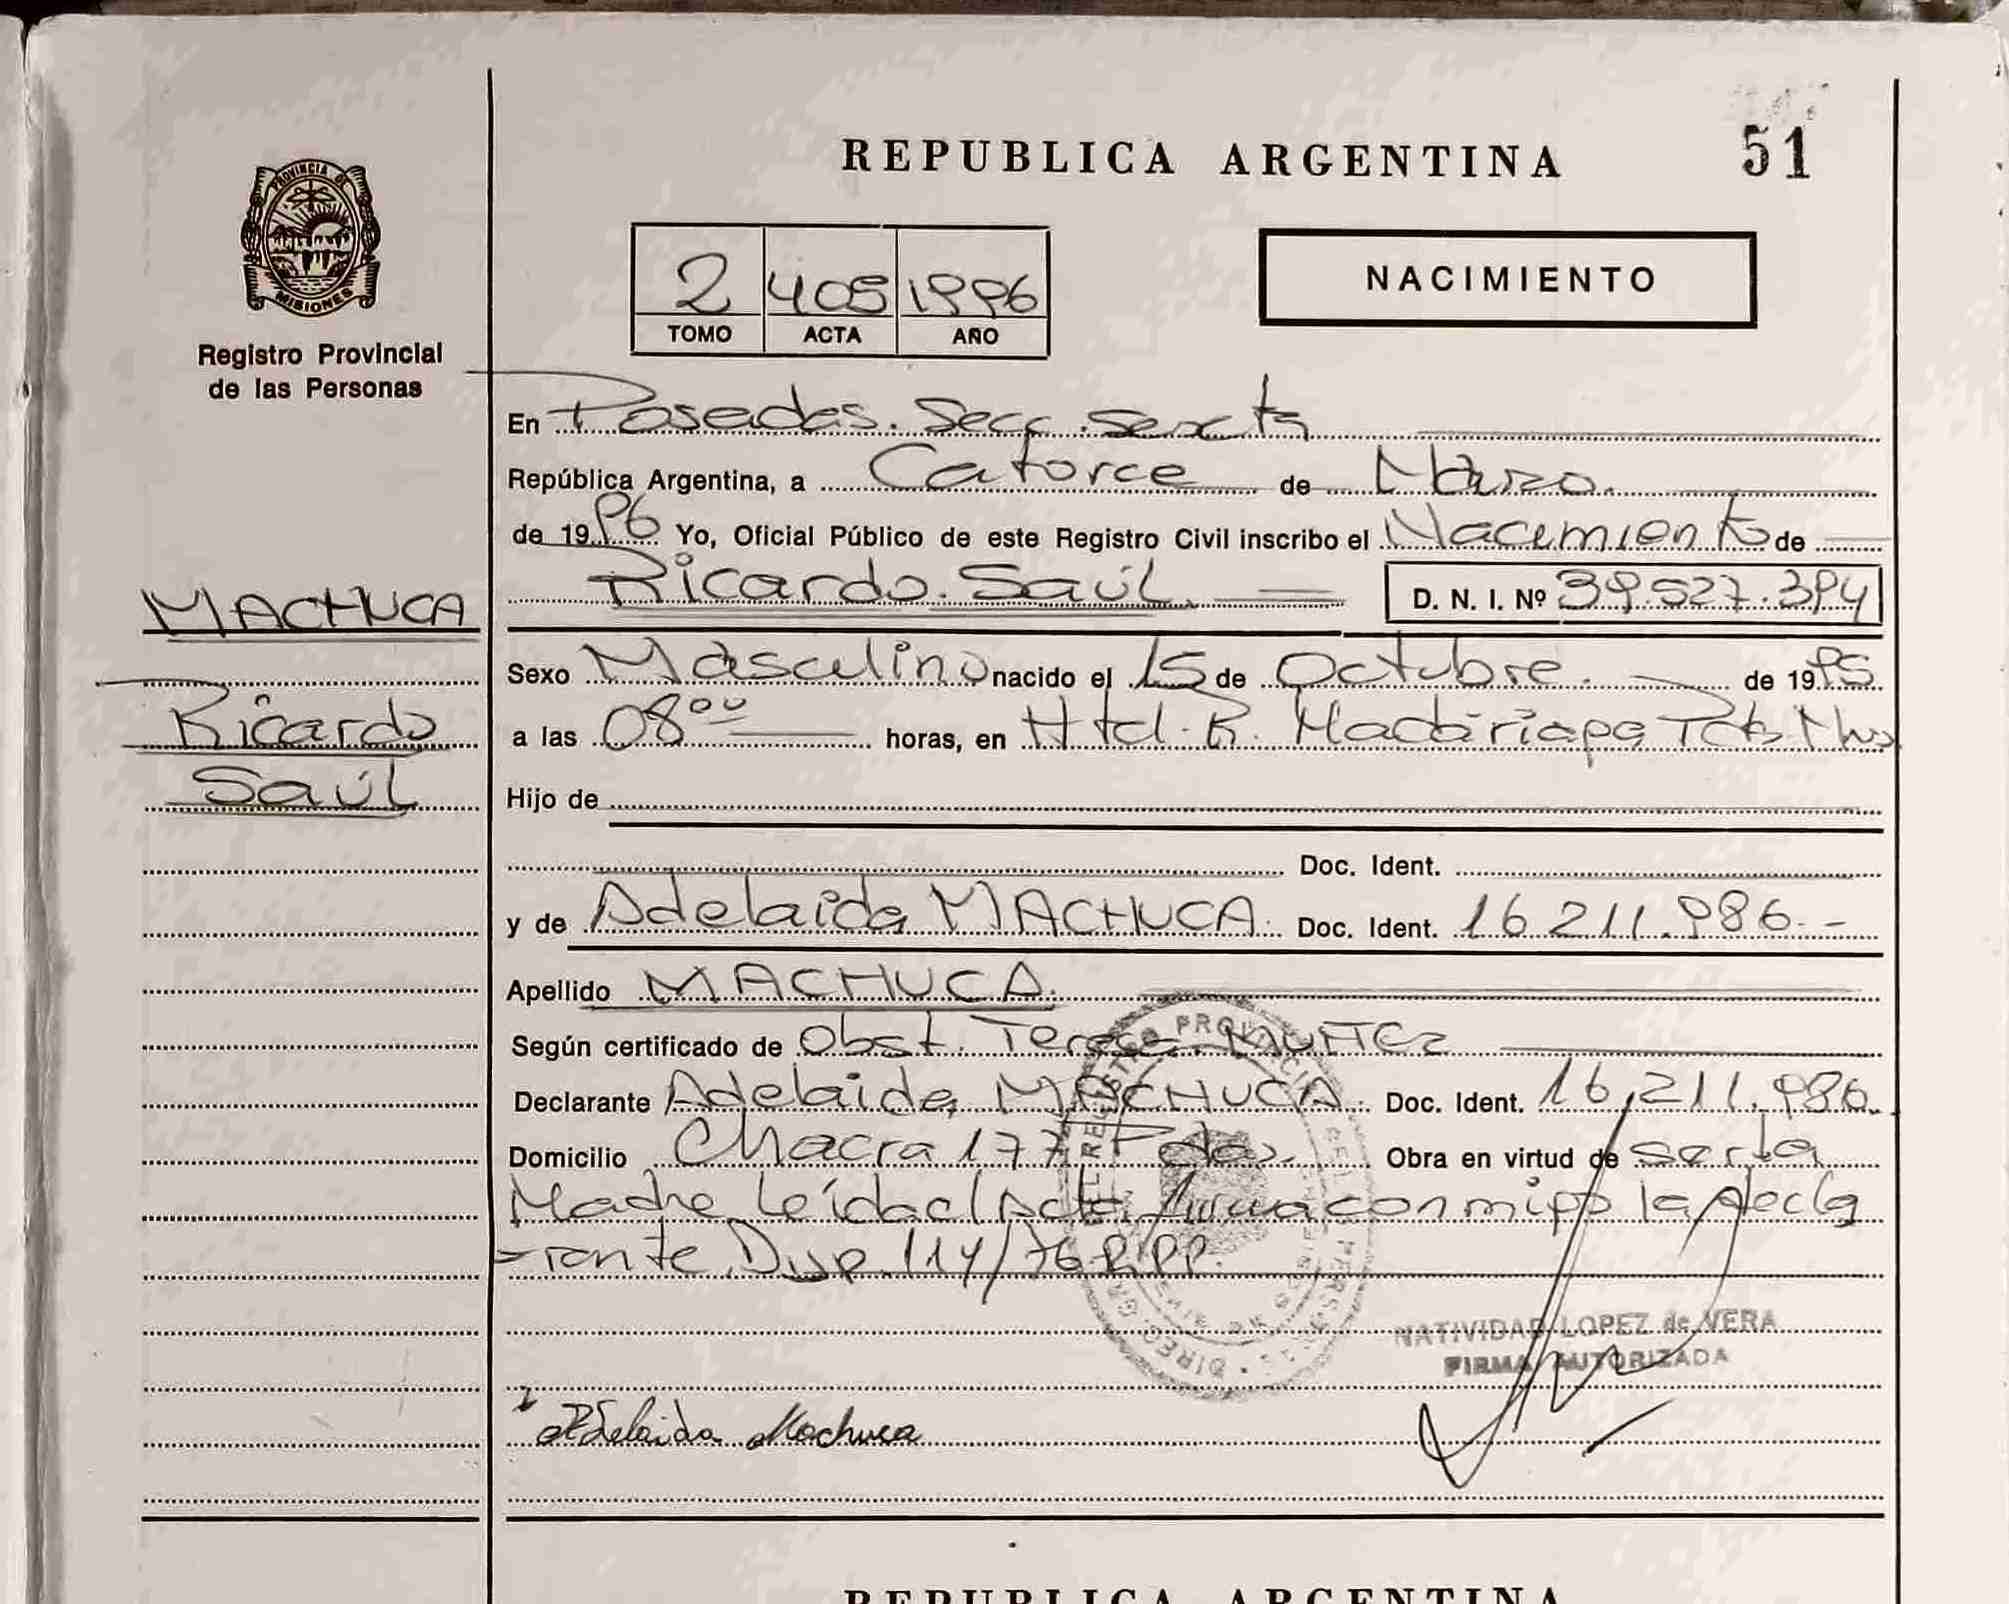 REPUBLICA ARGENTINA
51
PROVINCIA DE
MISIONES
Registro Provincial
de las Personas
2 405 1996
TOMO ACTA AÑO
NACIMIENTO
En Posadas. Secc. Sexta
República Argentina, a Catorce de Marzo.
de 1996 Yo, Oficial Público de este Registro Civil inscribo el Nacimiento de
Ricardo Saúl. D. N. I. Nº 39.527.394
MACHUCA
Ricardo
Saúl
Sexo Masculino nacido el 15 de Octubre. de 1995
a las 08⁰⁰ horas, en Htal. R. Madariaga
Hijo de
Doc. Ident.
y de Adelaida MACHUCA. Doc. Ident. 16 211.986.-
Apellido MACHUCA.
Según certificado de Obst. Teresa
Declarante Adelaida MACHUCA. Doc. Ident. 16.211.986.
Domicilio Chacra 177 Pdas. Obra en virtud de ser la
Madre Leída el Acta firma conmigo la decla
-rante. Disp. 114/76
NATIVIDAD LOPEZ de VERA
FIRMA AUTORIZADA
Adelaida Machuca
REPUBLICA ARGENTINA